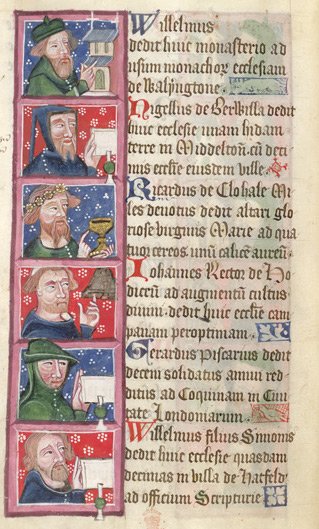 Willelmus
dedit huic monasterio ad
usum monachor ecclesiam
de Walsyngtone.
Nigellus de Berwilla dedit
huic ecclesie unam hydam
terre in Middeltoñ cū deci
mis eccłie eiusdem ville.
Ricardus de Clohale Mi
les devotus dedit altari glo
riose virginis Marie ad qua
tuor cereos unū calicē aureū.
Johannes Rector de Ho
dicum ad augmentū cultus
divini dedit huic ecclie cam
panam peroptimam.
Gerardus Piscarius dedit
decem solidatas annui red
ditus ad Coquinam in Civi
tate Londoniarum.
Willelmus filius Simonis
dedit huic ecclesie quasdam
decimas in villa de Hatfeld
ad officium Scriptorie.